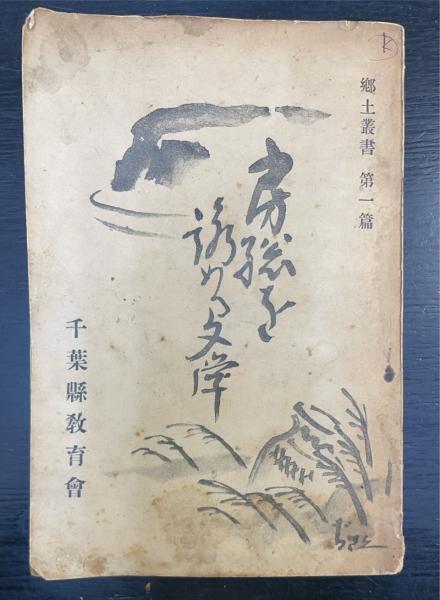 郷土叢書 第一篇
房総を
詠める文学
千葉縣教育會